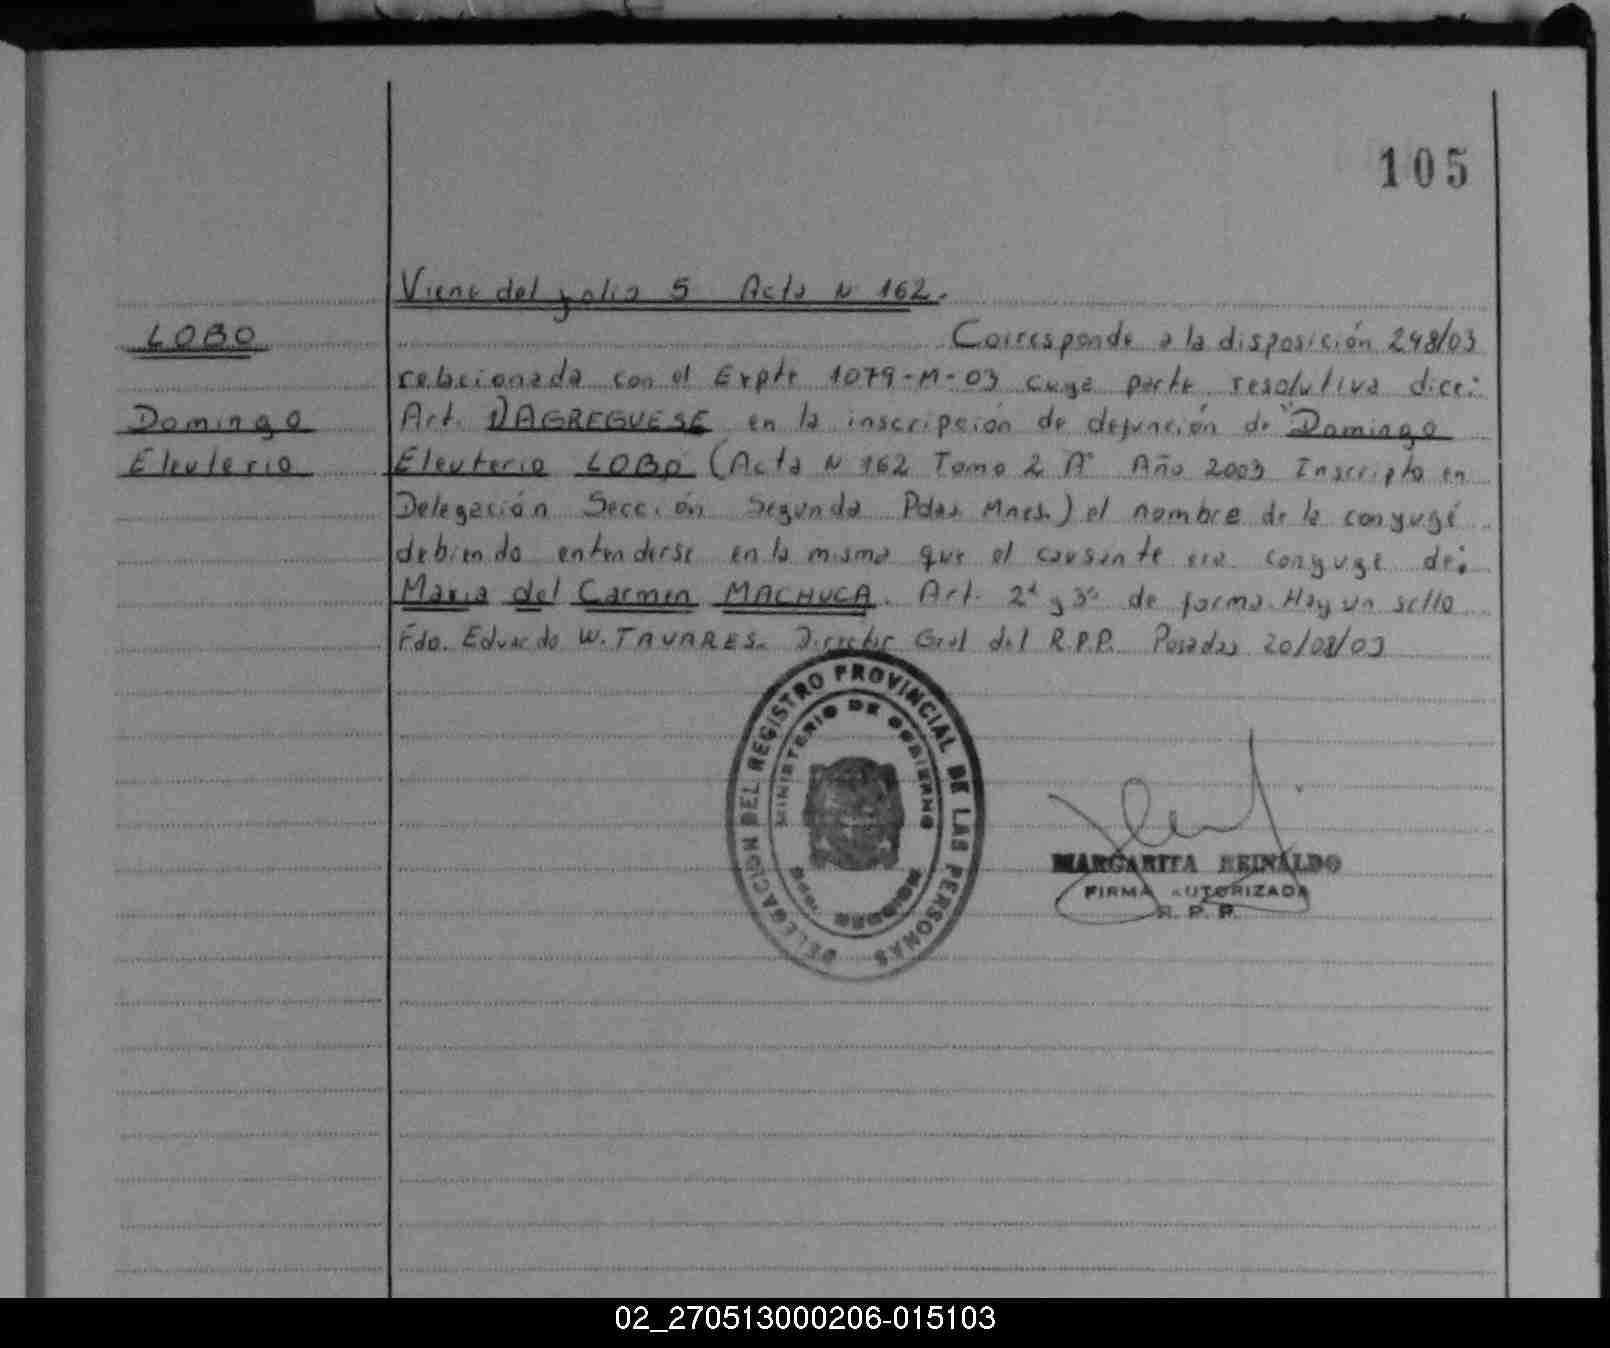 105
Viene del folio 5 Acta N 162.
LOBO
Corresponde a la disposición 248/03
relacionada con el Expte 1079-M-03 cuya parte resolutiva dice:
Domingo
Art. 1) AGREGUESE en la inscripción de defunción de "Domingo
Eleuterio
Eleuterio LOBO (Acta N 162 Tomo 2 A° Año 2003 Inscripta en
Delegación Sección Segunda Pdas Mnes.) el nombre de la conyugé
debiendo entenderse en la misma que el causante era conyuge de:
Maria del Carmen MACHUCA. Art. 2° y 3° de forma. Hay un sello
Fdo. Eduardo W. TAVARES. Director Gral del R.P.P. Posadas 20/08/03
DELEGACION DEL REGISTRO PROVINCIAL DE LAS PERSONAS
MINISTERIO DE GOBIERNO
MARGARITA REINALDO
FIRMA AUTORIZADA
R. P. P.
02_270513000206-015103